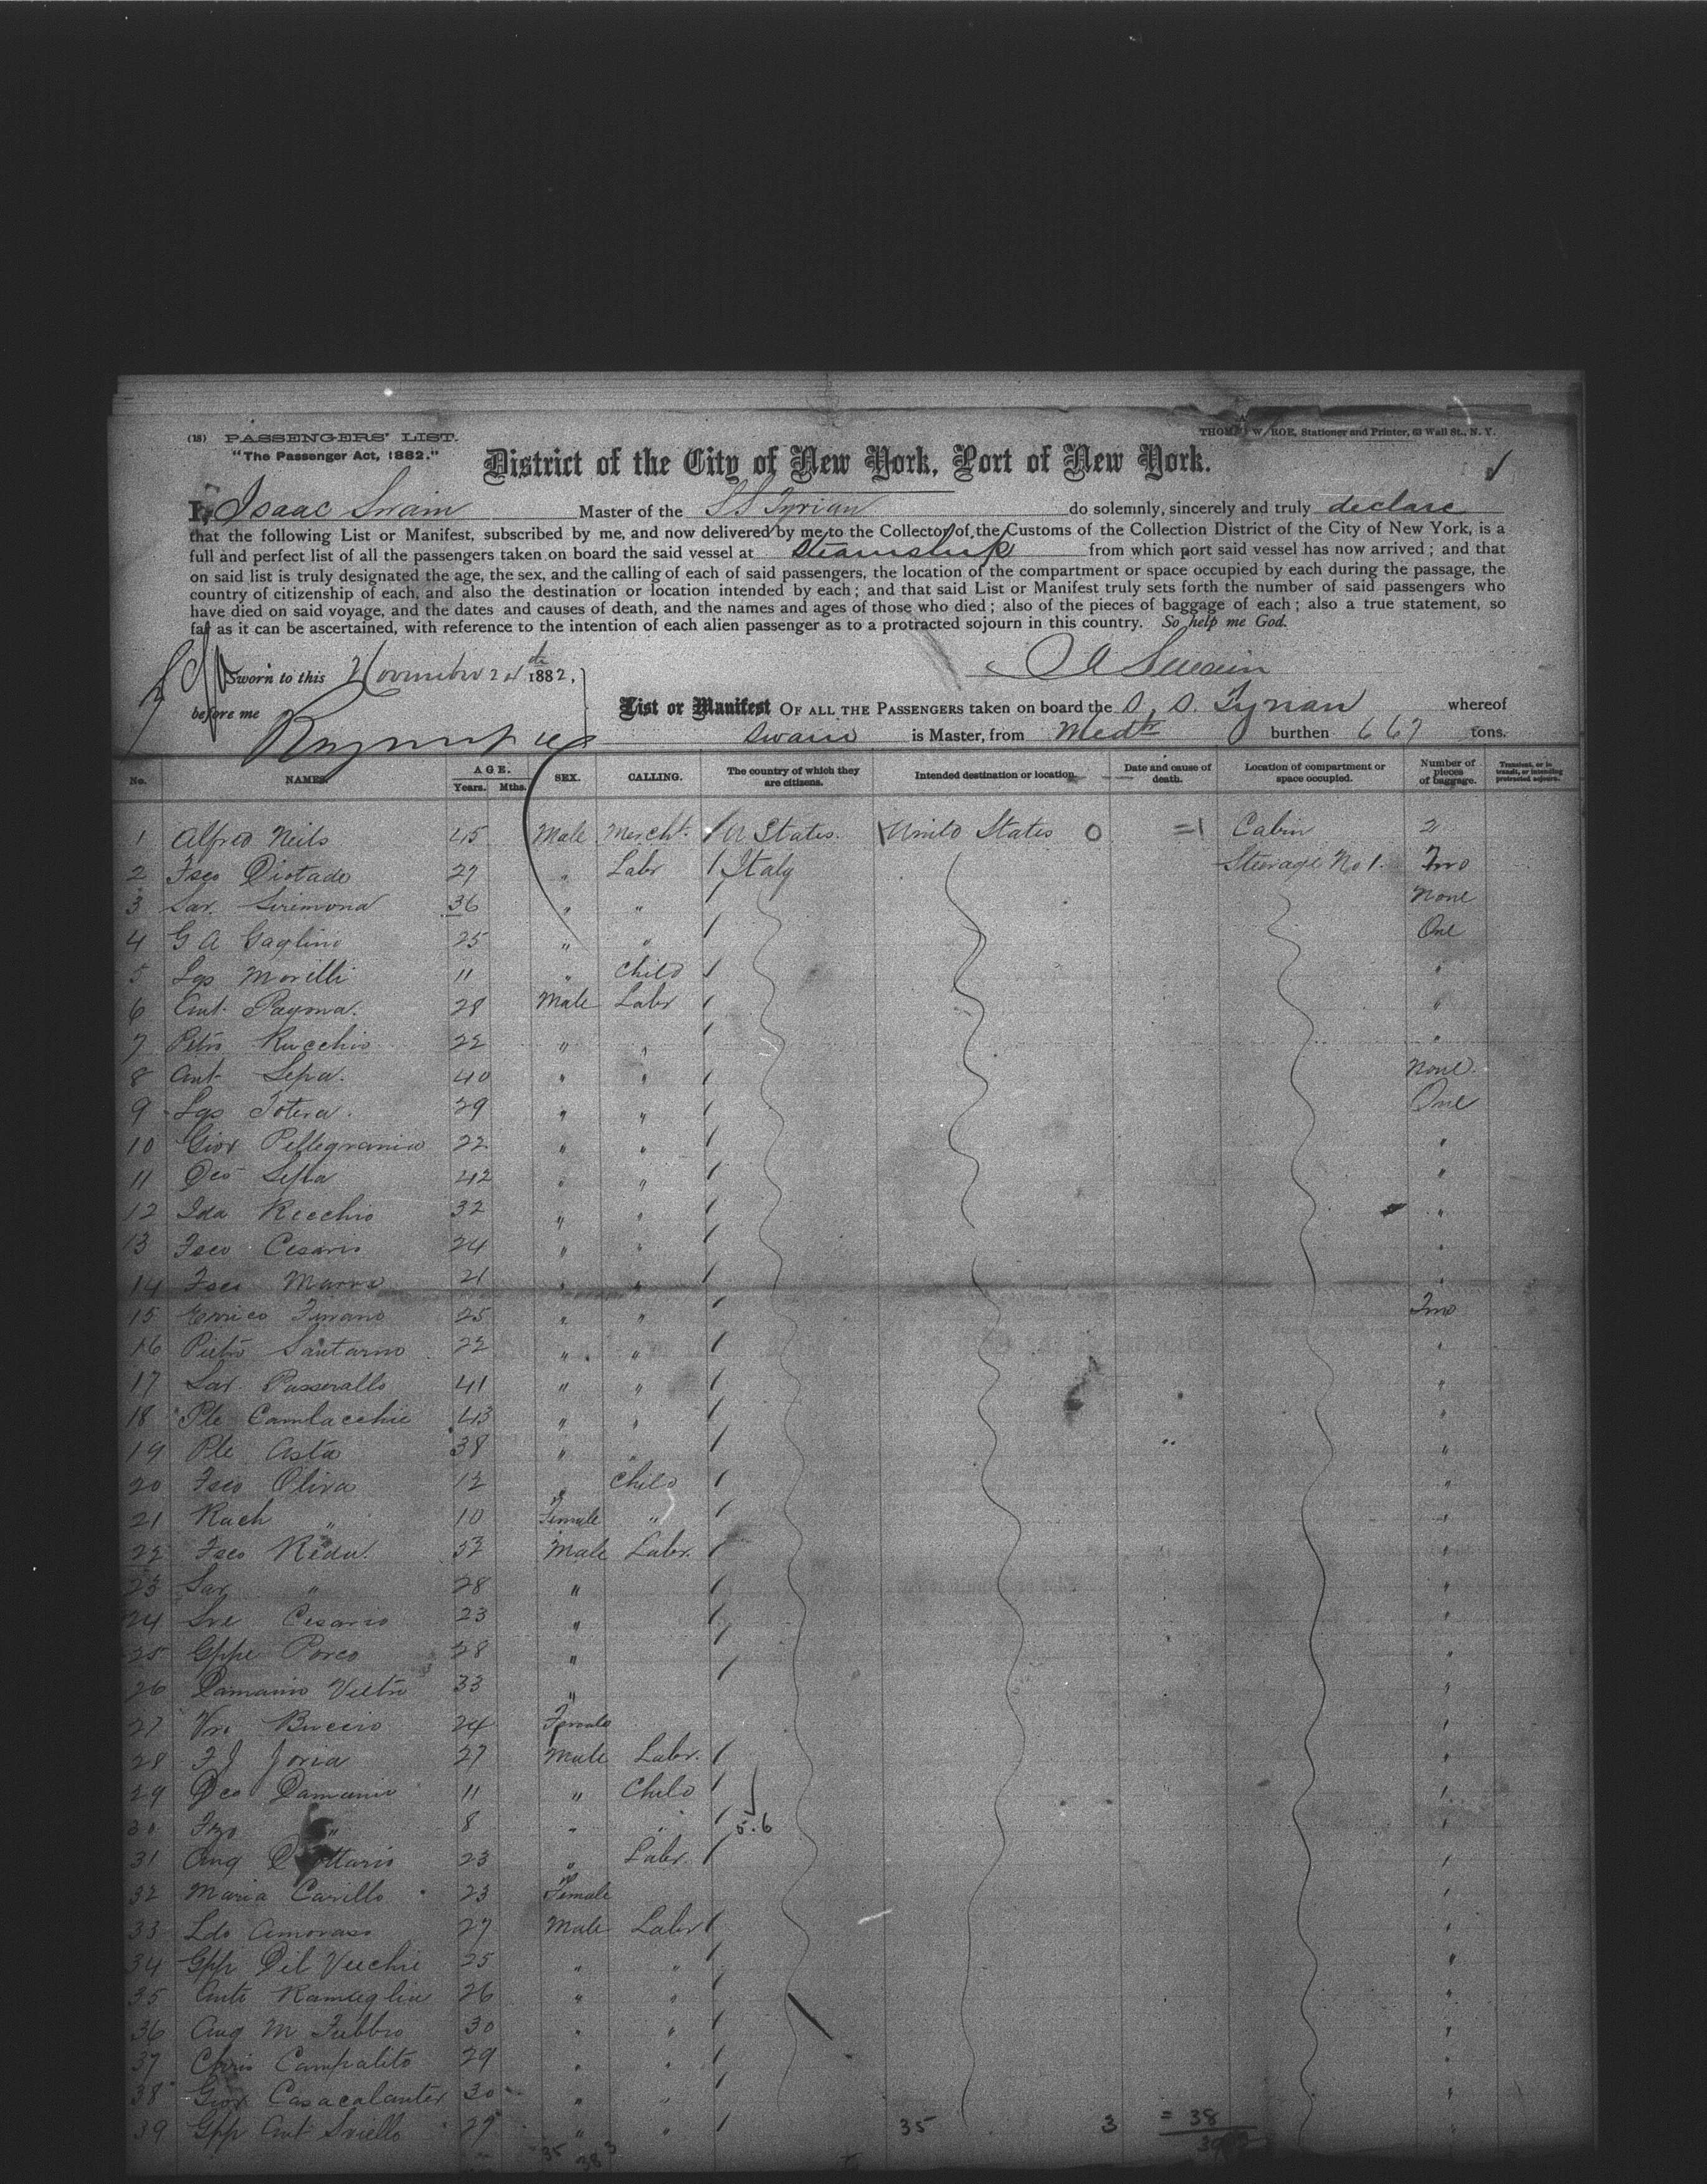 (18) PASSENGERS' LIST.
"The Passenger Act, 1882."
THOMAS W. ROE, Stationer and Printer, 63 Wall St., N. Y.
District of the City of New York, Port of New York.
I, Isaac Swain Master of the SS Tyrian do solemnly, sincerely and truly declare
that the following List or Manifest, subscribed by me, and now delivered by me to the Collector of the Customs of the Collection District of the City of New York, is a
full and perfect list of all the passengers taken on board the said vessel at Steamship from which port said vessel has now arrived; and that
on said list is truly designated the age, the sex, and the calling of each of said passengers, the location of the compartment or space occupied by each during the passage, the
country of citizenship of each, and also the destination or location intended by each; and that said List or Manifest truly sets forth the number of said passengers who
have died on said voyage, and the dates and causes of death, and the names and ages of those who died; also of the pieces of baggage of each; also a true statement, so
far as it can be ascertained, with reference to the intention of each alien passenger as to a protracted sojourn in this country. So help me God.
Sworn to this November 24th 1882,
Swain
before me
List or Manifest OF ALL THE PASSENGERS taken on board the S. S. Tyrian whereof
Swain is Master, from Medtr burthen 667 tons.
No. NAMES. AGE. Years. Mths. SEX. CALLING. The country of which they are citizens. Intended destination or location. Date and cause of death. Location of compartment or space occupied. Number of pieces of baggage. Transient, or in transit, or intending protracted sojourn.
1 Alfred Neils 45 Male Mercht. / U States. United States 0 =1 Cabin 2
2 Fsco Diotado 27 " Labr / Italy Steerage No 1. Two
3 Sav. 36 " " / None
4 G A Gaglino 25 " " / One
5 Lgs Morelli 11 " Child / "
6 Ant. Pagona. 28 Male Labr / "
7 Petro Rucchio 22 " " / "
8 Ant Sepa. 40 " " / None.
9 Lgs Totera. 29 " " / One
10 Giov Pellegranio 22 " " / "
11 Dco Sepa 42 " " / "
12 Ida Recchio 32 " " / "
13 Fsco Cesario 24 " " / "
14 Fsco Marra 21 " " / "
15 Errico Firrano 25 " " / Two
16 Pietro Santarno 22 " " / "
17 Sav. Passerallo 41 " " / "
18 Ple Camlacchie 43 " " / "
19 Ple Asta 38 " " / "
20 Fsco Oliva 12 " Child / "
21 Rach " 10 Female " / "
22 Fsco Reda. 52 Male Labr. / "
23 Sav " 28 " / "
24 Sve Cesario 23 " / "
25 Gppe Porco 28 " / "
26 Damanio Vietro 33 " / "
27 Vri Buccio 24 Female "
28 F J Joria 27 Male Labr. / "
29 Dco Damanio 11 " Child / "
30 Fzo " 8 " " / 5.6 "
31 Ang 23 " Labr. / "
32 Maria Carillo 23 Female "
33 Ldo Amoraso 27 Male Labr / "
34 Gpp Del Vecchie 25 " " / "
35 Anto Ramaglia 26 " " / "
36 Ang M Fubbro 30 " " / "
37 Chris Campalito 29 " " / "
38 Giov Casacalanter 30 " " / "
39 Gpp Ant Sviello 29 " " / 35 3 = 38 "
35 38 3 39